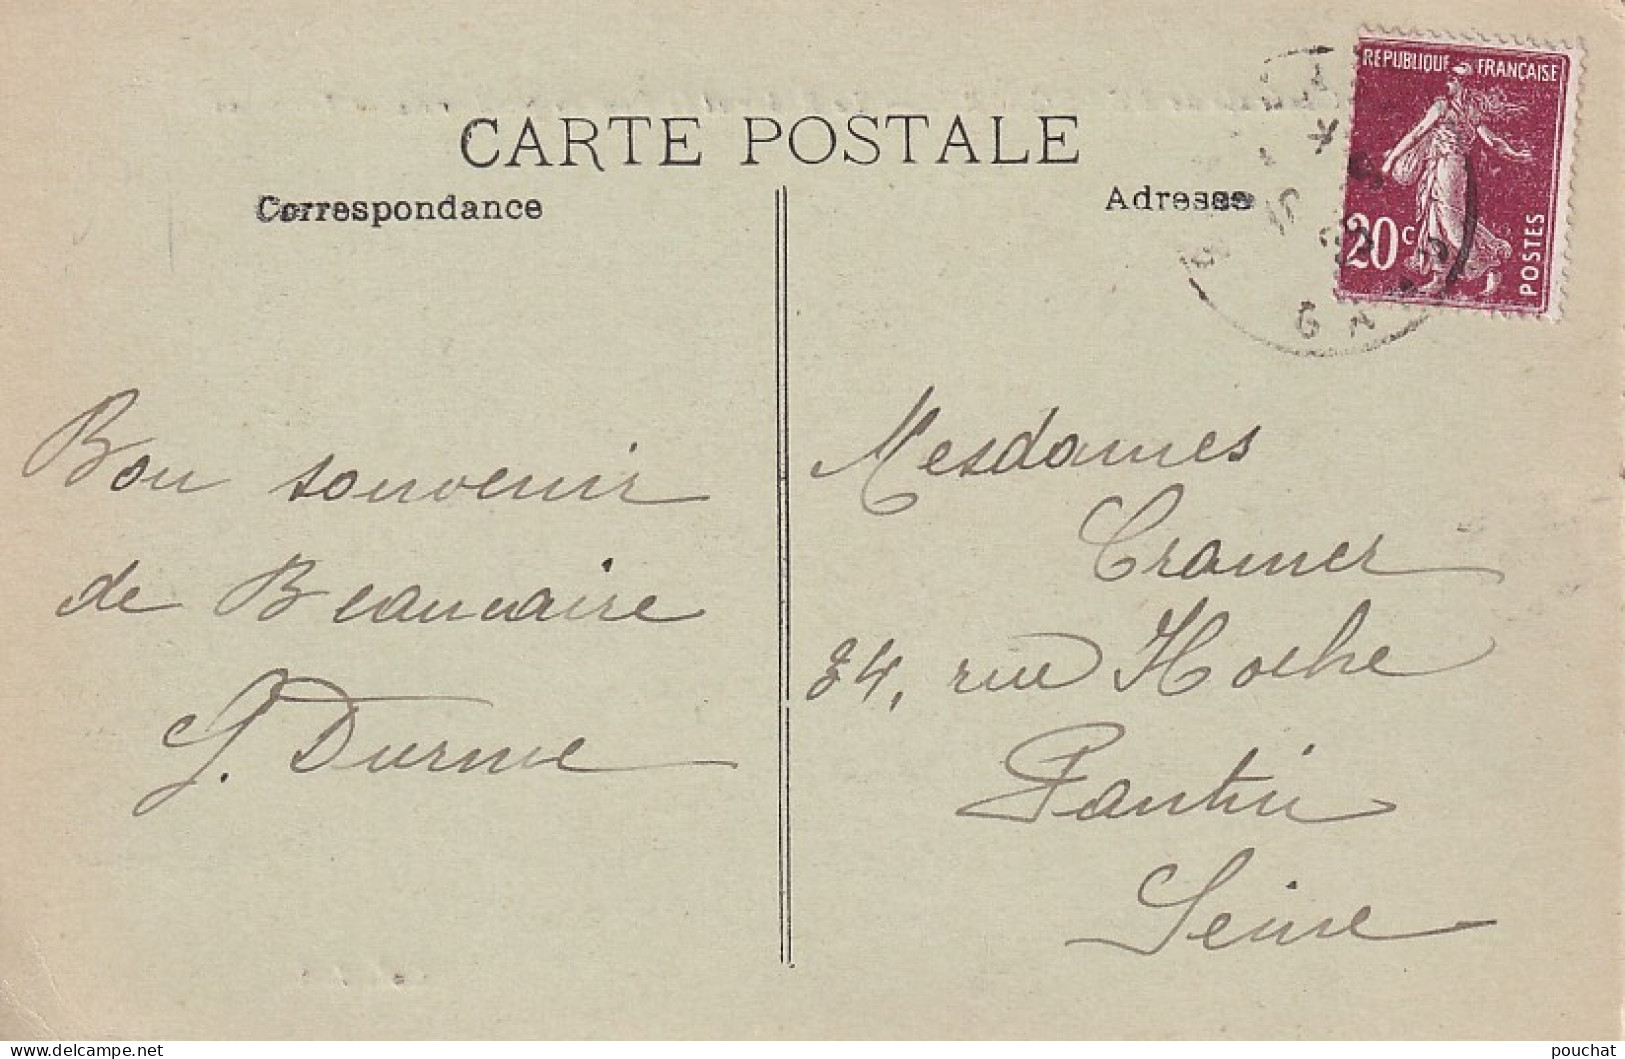 CARTE POSTALE
Correspondance
Adresse
REPUBLIQUE FRANÇAISE
20c
POSTES
GARD
Bon souvenir
de Beaucaire
Mesdames
Cramer
34, rue Hoche
Pantin
Seine
delcampe.net
pouchat